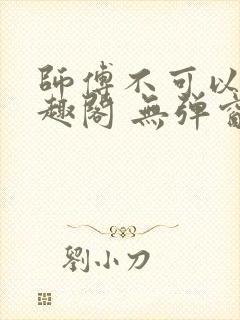 師傅不可以
趣閣 無彈窗
劉小刀